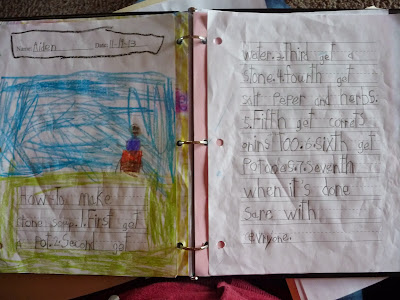 Name: Aiden Date: 11-19-13
How to make
stone soup. 1. First get
a pot. 2. Second get
water. 3. Third get a
stone. 4. fourth get
salt Peper and herbs.
5. Fifth get carrots
enins too. 6. sixth get
Potatoas. 7. Seventh
when it's done
Sare with
evryone.